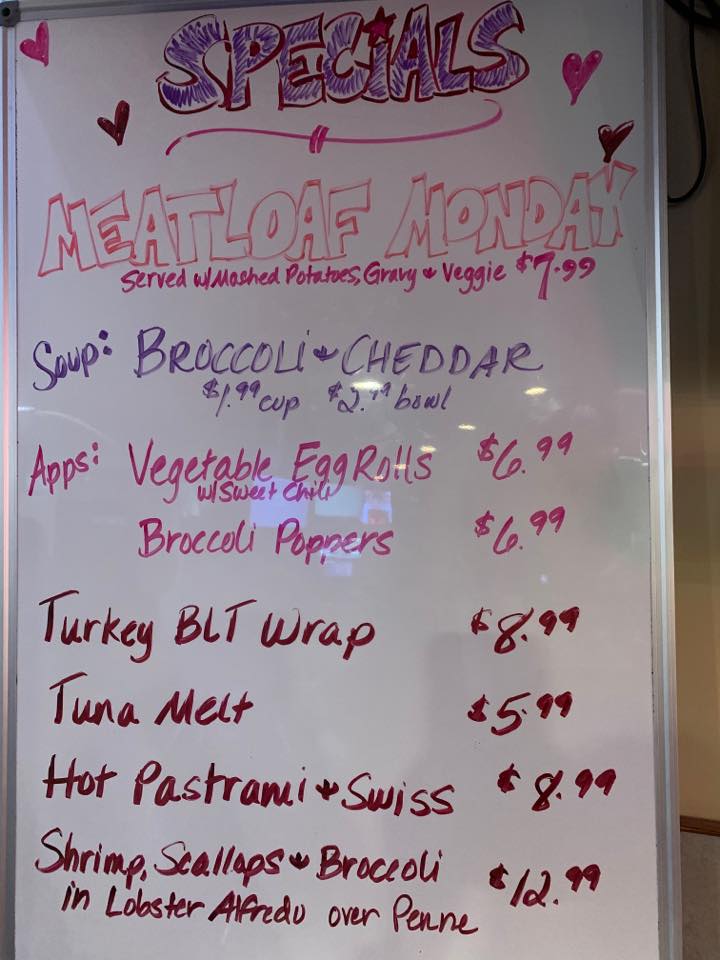 SPECIALS
MEATLOAF MONDAY
Served w/Mashed Potatoes, Gravy & Veggie $7.99
Soup: BROCCOLI & CHEDDAR
$1.99 cup $2.99 bowl
Apps: Vegetable Egg Rolls $6.99
w/Sweet Chili
Broccoli Poppers $6.99
Turkey BLT Wrap $8.99
Tuna Melt $5.99
Hot Pastrami & Swiss $8.99
Shrimp, Scallops & Broccoli $12.99
in Lobster Alfredo over Penne